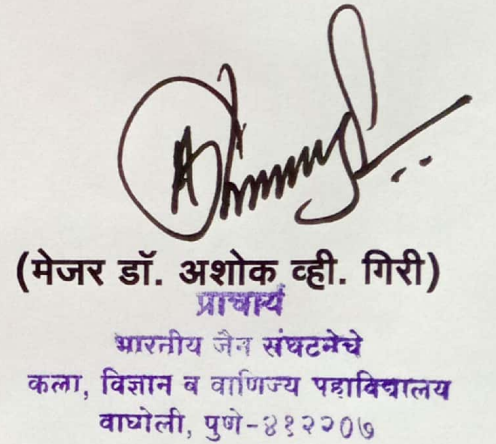 (मेजर डॉ. अशोक व्ही. गिरी)
प्राचार्य
भारतीय जैन संघटनेचे
कला, विज्ञान व वाणिज्य महाविद्यालय
वाघोली, पुणे-४१२२०७